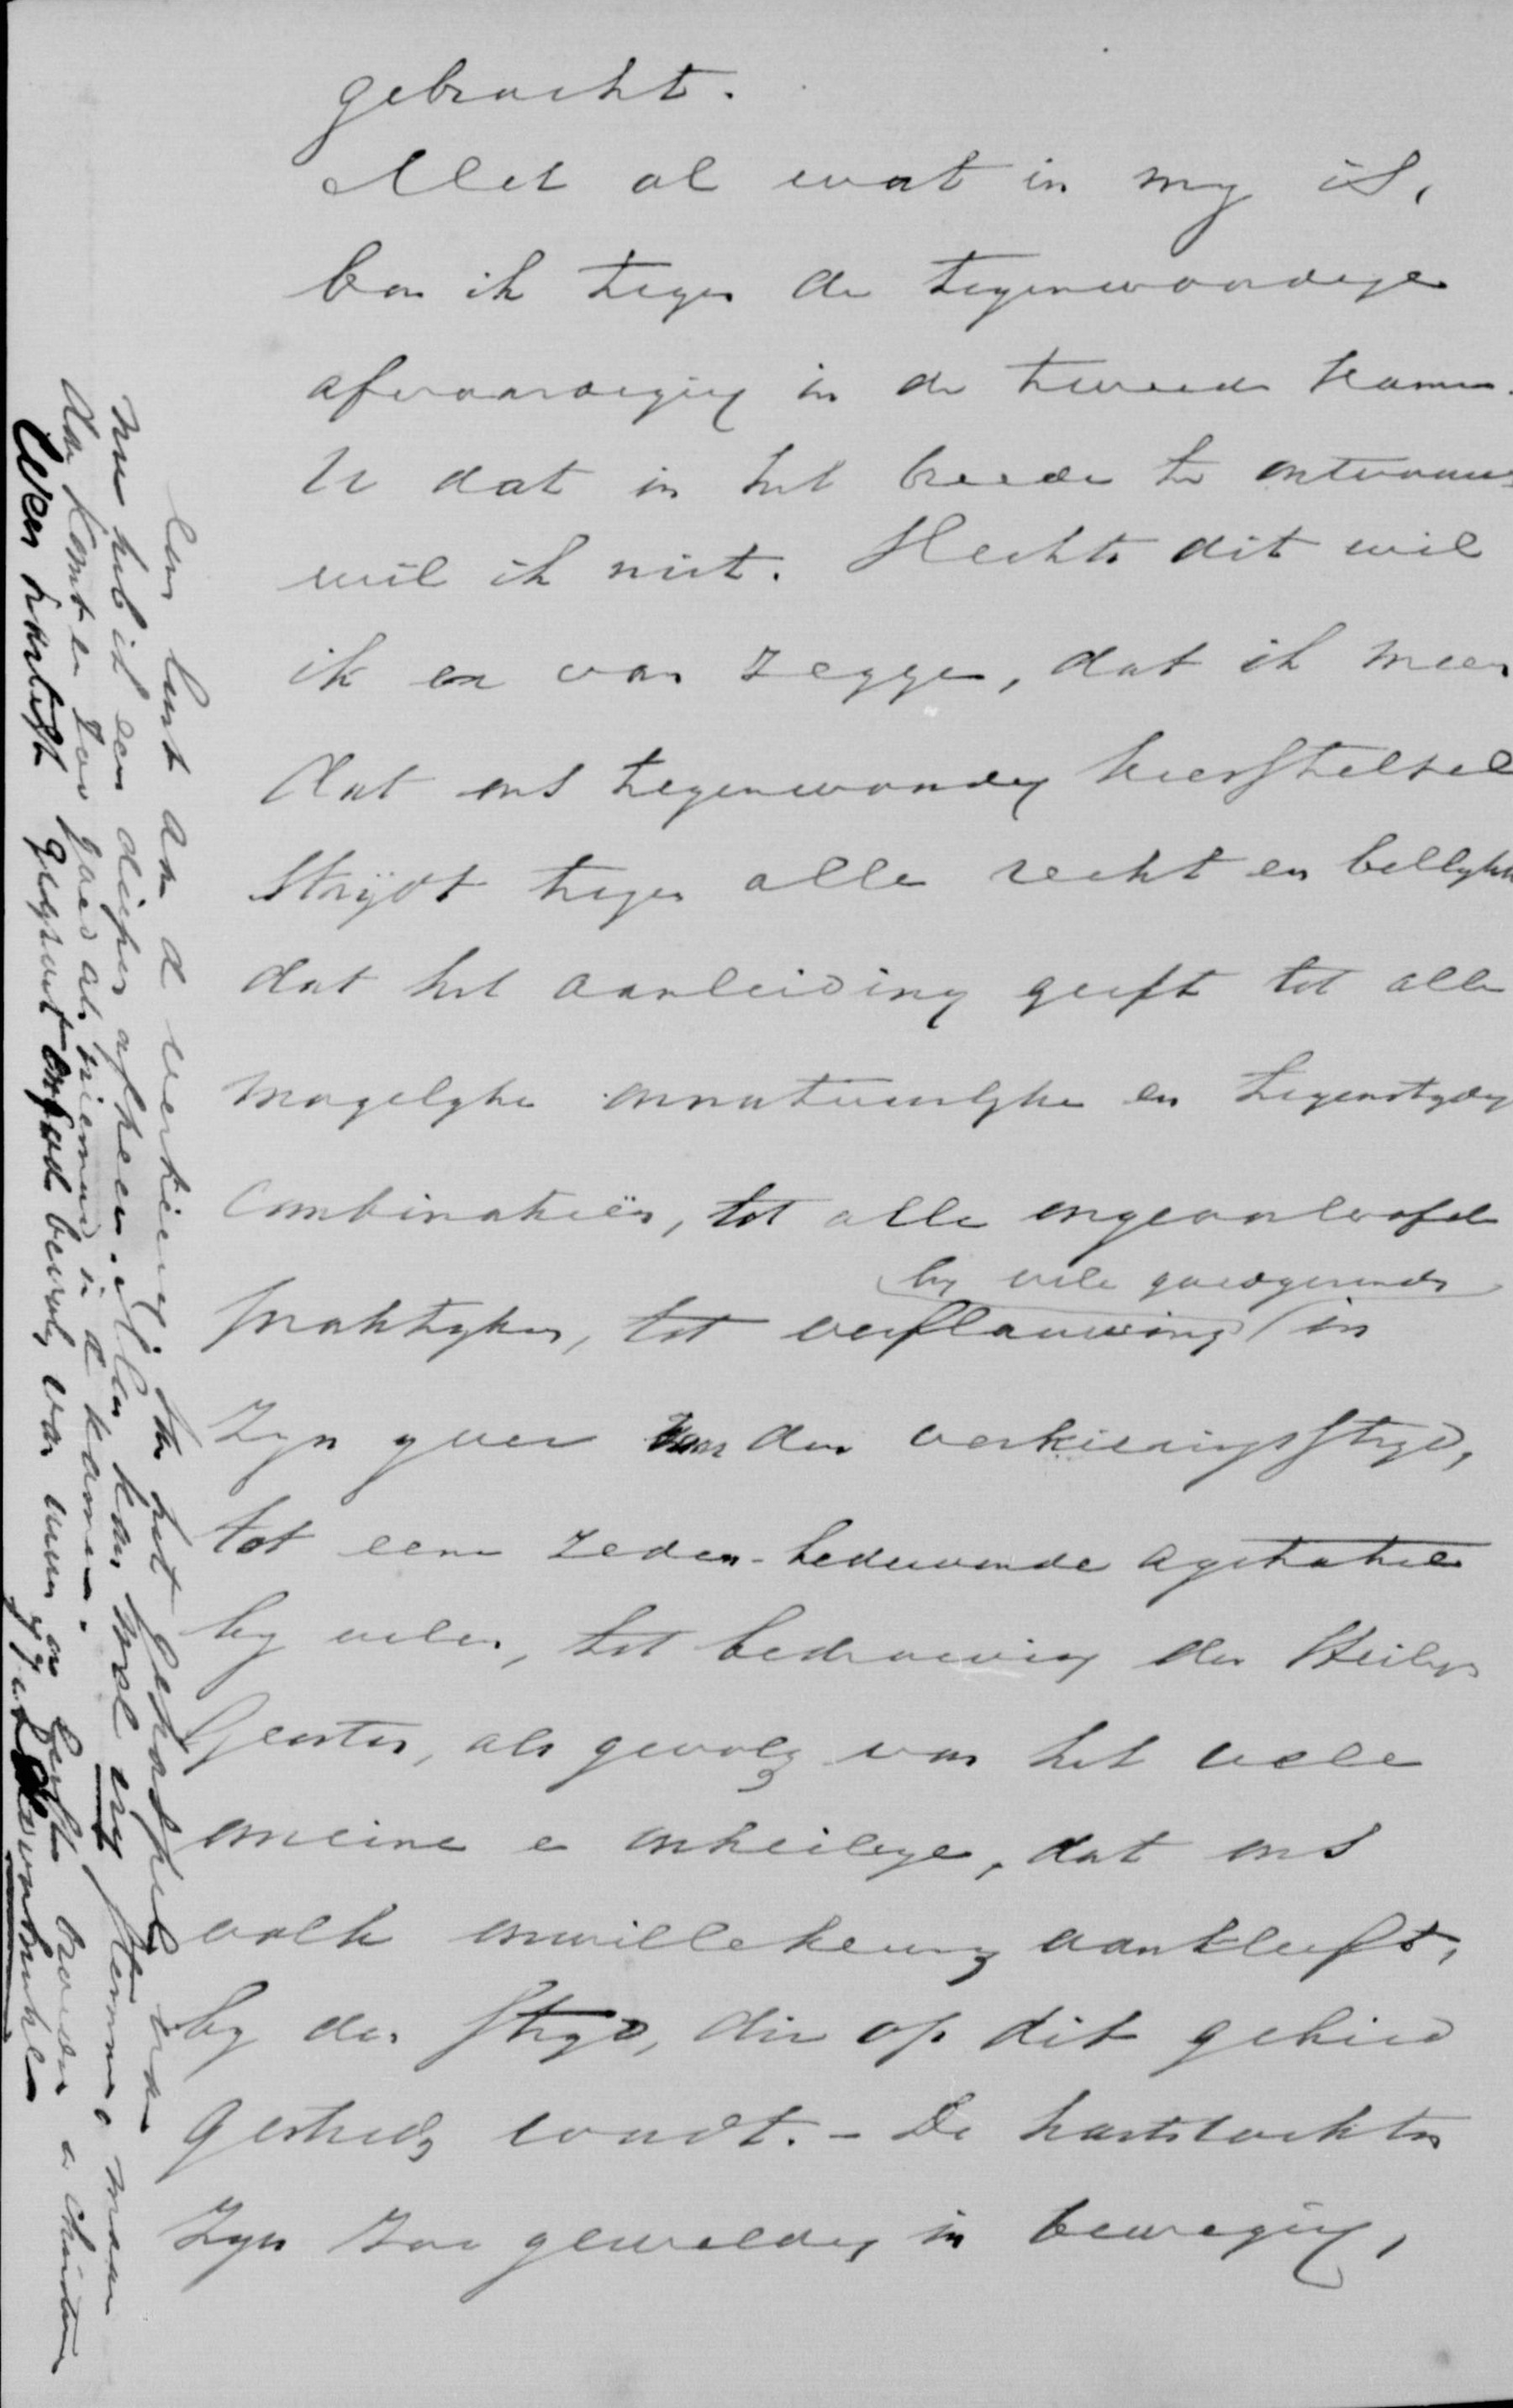 gebracht.
Met al wat in my is,
ben ik tegen de tegenwoordige
afvaardiging in de tweede Kamer.
U dat in het breede te ontvouwen
wil ik niet. Slechts dit wil
ik er van zeggen, dat ik meen
dat ons tegenwoordig kiesstelsel
strijdt tegen alle recht en billykh
dat het aanleiding geeft tot alle
mogelyke onnatuurlyke en tegenstrydig
combinatiën, tot alle ongeoorloofde
praktyken, tot verflauwing (by vele goedgezinde) in
zyn yver van den verkiezingsstryd,
tot eene zeden-bedervende agitatie
by velen, tot bedroeving des Heilige
Geestes, als gevolg van het vele
onreine en onheilige, dat ons
volk onwillekeurig aankleeft,
by den stryd, die op dit gebied
gestreden wordt. – De hartstochten
zyn zoo geweldig in beweging,
lust aan de verkiezing. het
nu heb ik een dieper afkeer. kan wel stemmen maar
Dan komt er zoo goed als niemand in de kamer.
Een hartelyk bewys van en broeder en christen